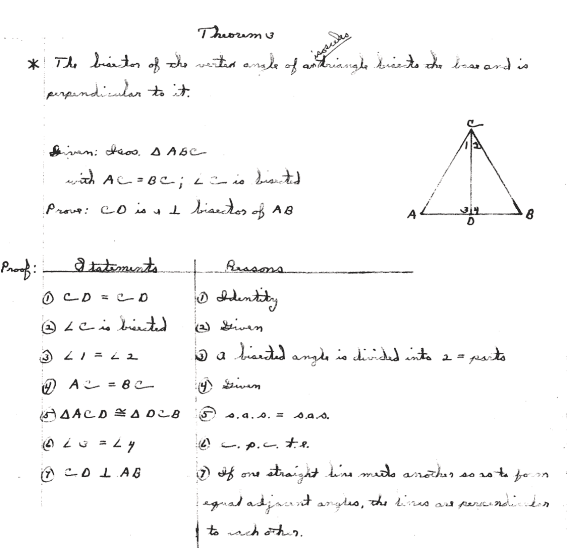 Theorem 3
isosceles
* The bisector of the vertex angle of an triangle bisects the base and is
perpendicular to it.
Given: Isos. Δ ABC
with AC = BC; ∠C is bisected
Prove: CD is a ⊥ bisector of AB
C
1 2
3 4
A D B
Proof: Statements Reasons
① CD = CD ① Identity
② ∠C is bisected ② Given
③ ∠1 = ∠2 ③ A bisected angle is divided into 2 = parts
④ AC = BC ④ Given
⑤ ΔACD ≅ ΔDCB ⑤ s.a.s. = s.a.s.
⑥ ∠3 = ∠4 ⑥ c.p.c.t.e.
⑦ CD ⊥ AB ⑦ If one straight line meets another so as to form
equal adjacent angles, the lines are perpendicular
to each other.